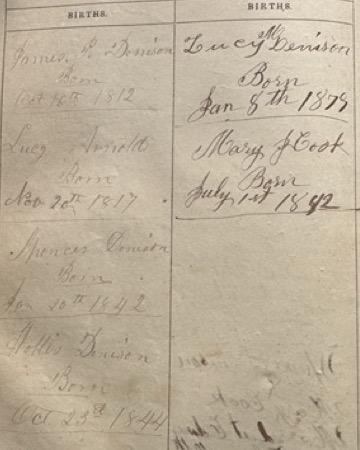 BIRTHS.
James P. Denison
Born
Oct 16th 1812
Lucy Arnold
Born
Nov 20th 1817
Spencer Denison
Born
Jan 20th 1842
Hollis Denison
Born
Oct 23d 1844
BIRTHS.
Lucy M Denison
Born
Jan 8th 1879
Mary J Cook
Born
July 1st 1842